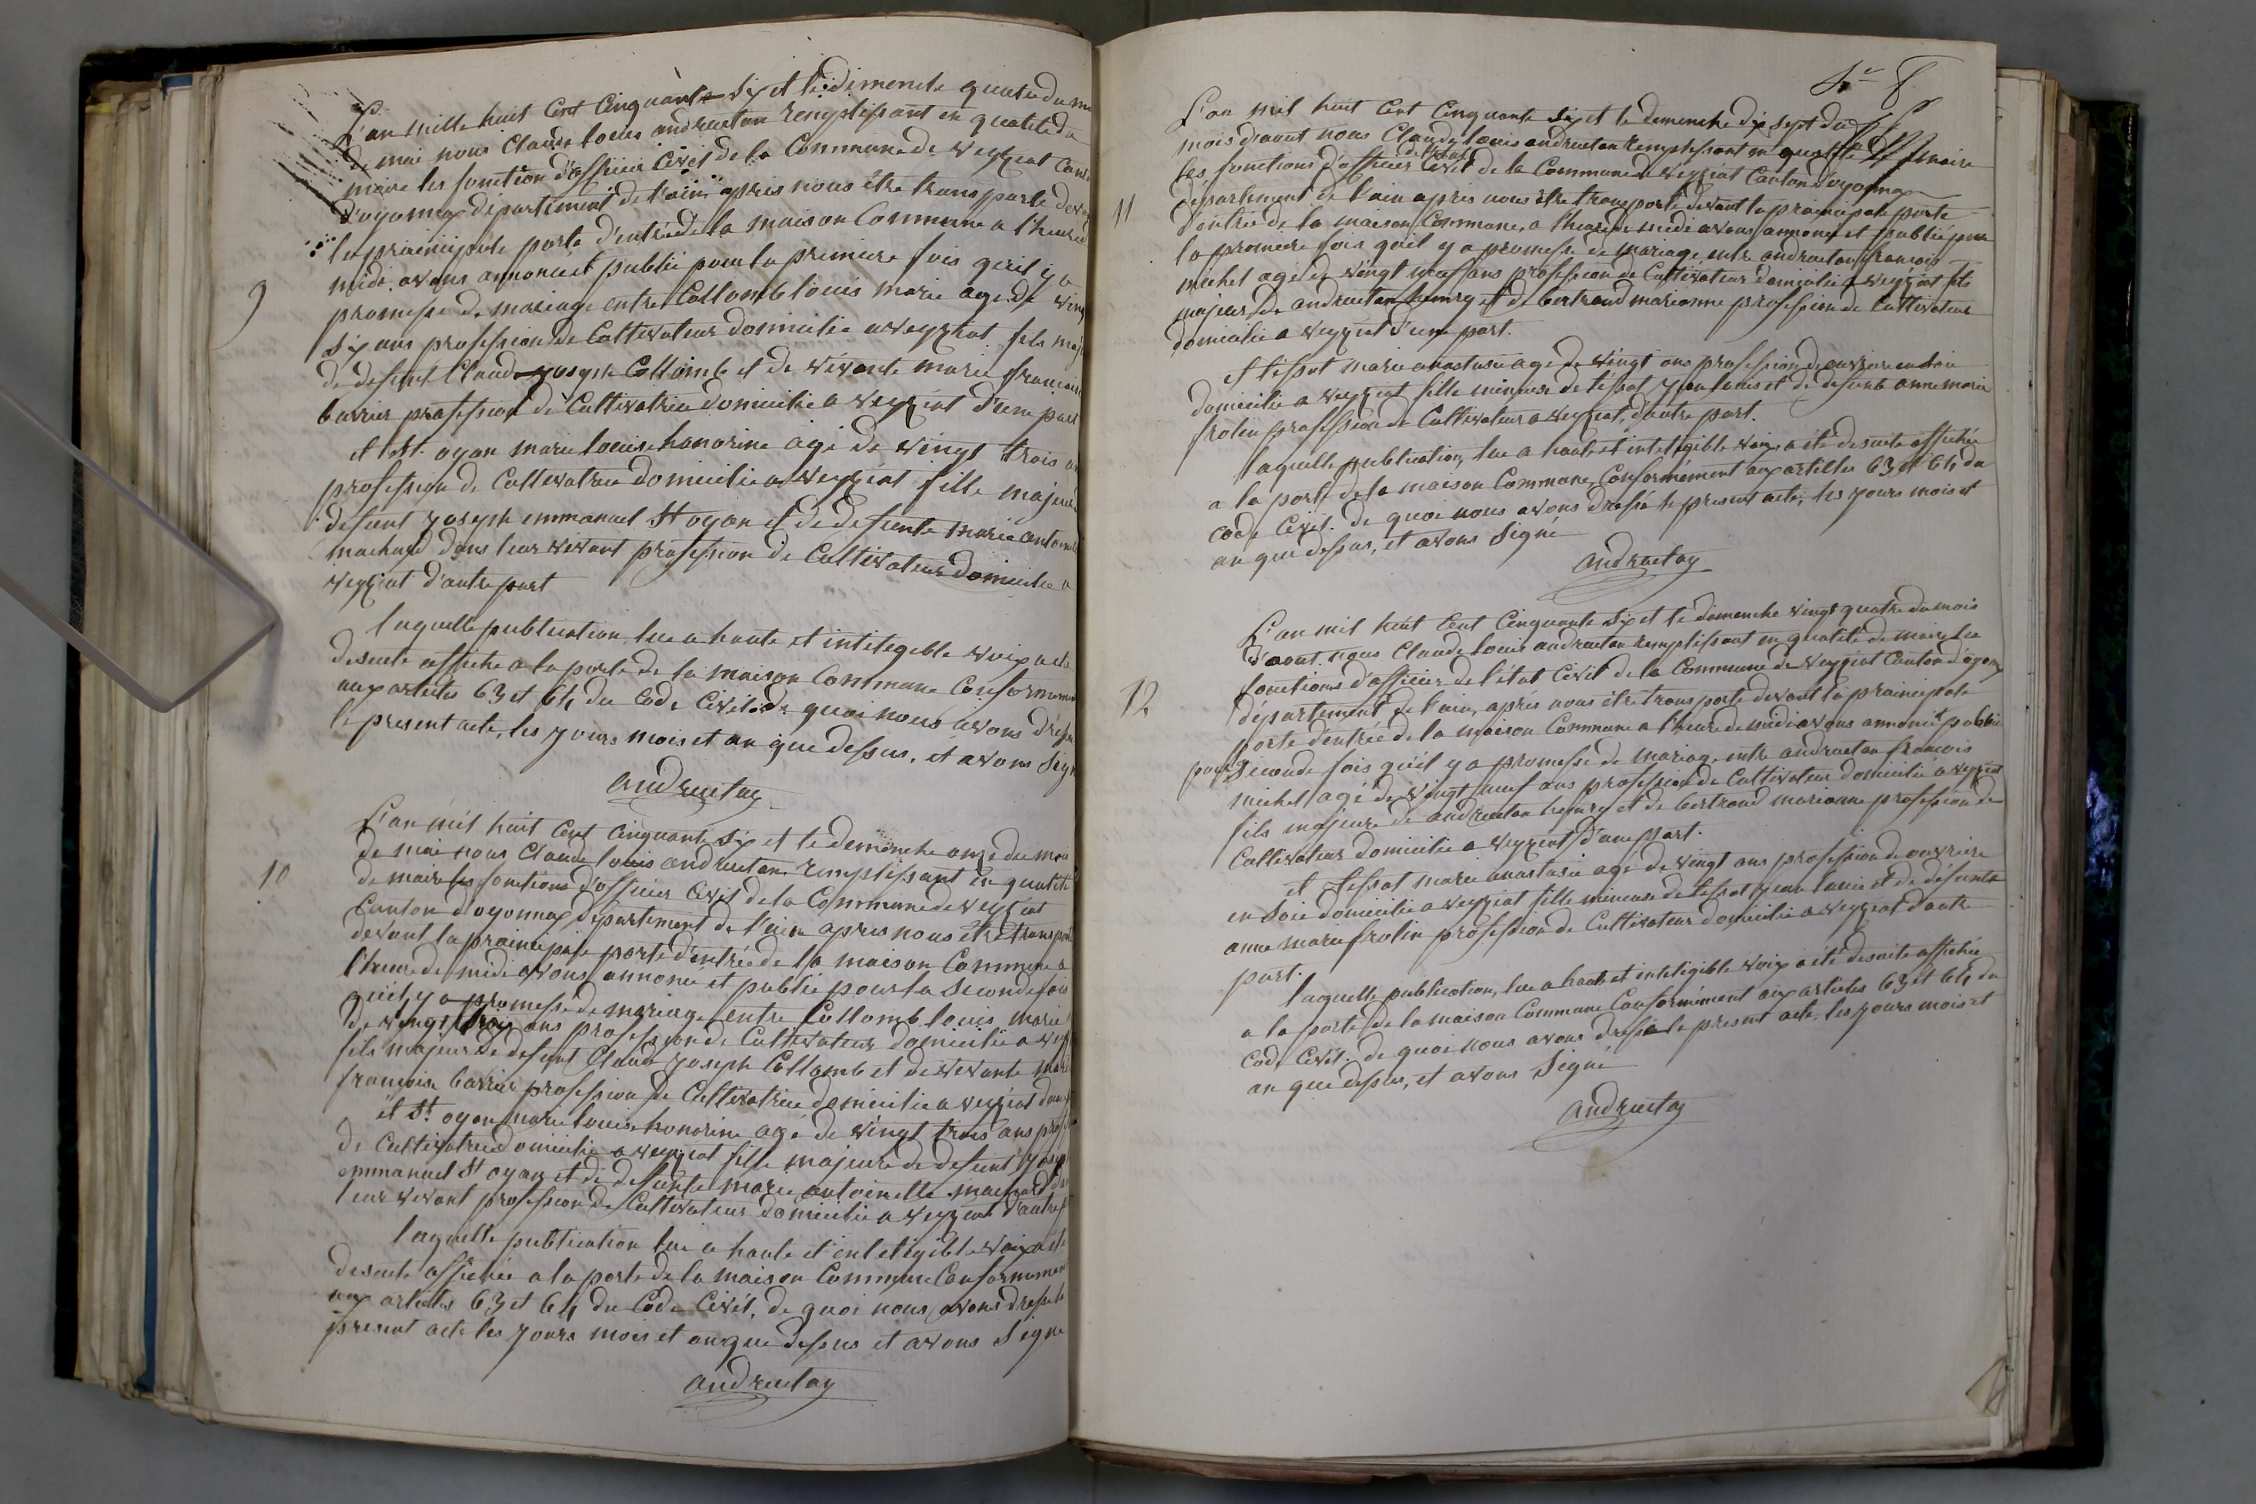 9
L'an mille huit Cent Cinquante Six et le dimenche quatre du
de mai nous Claude louis andrueton remplissant en qualité de
maire les fonction d'officier Civil de la Commune de veyziat
d'oyonnax département de l'ain apres nous être transporte
la prainsipale porte d'entrée de la maison Commune a l'heure
midi avons annoncé et publié pour la premiere fois qu'il y a
promesse de mariage entre Collomb louis marie age de
Six ans profession de Cultivateur domicilié a veyziat fils
de defunt Claude joseph Collomb et de vivante marie
barrier profession de Cultivatrice domicilié a veyziat d'une
et St oyan marie louise honorine agé de vingt trois
profession de Cultivatrice domicilié a veyziat fille
defunt joseph emmanuel St oyan et de defunte marie
dans leur vivant profession de Cultivateur domicilié a
veyziat d'autre part
laquelle publication lue a haute et inteligible voix a
desuite affiché a la porte de la maison Commune
aux articles 63 et 64 du Code Civil de quoi nous avons
le present acte, les jours mois et an que dessus, et avons
andrueton
10
L'an mil huit Cent Cinquante Six et le demenche onze du
de mai nous Claude louis andrueton remplissant en qualité
de maire les fonctions d'officier Civil de la Commune de veyziat
Canton d'oyonnax département de l'ain apres nous être
devant la prainsipale porte d'entrée de la maison Commune a
l'heure de midi avons annoncé et publié pour la Seconde fois
qu'il y a promesse de mariage entre Collomb louis marie
de vingt ans profession de Cultivateur domicilié a
fils majeur de defunt Claude joseph Collomb et de vivante
barrier profession de Cultivatrice domicilié a veyziat
et St oyan marie louise honorine agé de vingt trois ans
de Cultivatrice domicilié a veyziat fille majeure de defunt
emmanuel St oyan et de defunte marie antoinette
leur vivant profession de Cultivateur domicilié a veyziat
laquelle publication lue a haute et inteligible voix
desuite affichée a la porte de la maison Commune
aux articles 63 et 64 du Code Civil, de quoi nous avons
present acte les jours mois et an que dessus et avons Signe
andrueton
8
11
L'an mil huit Cent Cinquante Six et le demenche dix sept du
mois d'aout nous Claude louis andrueton remplissant en qualité de maire
les fonctions d'officier Civil de la Commune de veyziat Canton d'oyonnax
departement de l'ain apres nous être transporté devant la prainsipale porte
d'entrée de la maison Commune, a l'heure de midi avons annoncé et publié pour
la premiere fois qu'il y a promesse de mariage entre andrueton francois
michel agé de vingt neuf ans profession de Cultivateur domicilié a veyziat fils
majeur de andrueton henry et de bertrand marianne profession de Cultivateur
domicilié a veyziat d'une part.
et tissot marie anastasie agé de vingt ans profession de ouvriere en Soie
domicilié a veyziat fille mineure de tissot jean louis et de defunte anne marie
frolin profession de Cultivateur a veyziat, d'autre part.
laquelle publication, lue a haute et inteligible voix, a été desuite affichée
a la porte de la maison Commune, Conformément aux articles 63 et 64 du
Code Civil. de quoi nous avons dressé le present acte, les jours mois et
an que dessus, et avons Signé
andrueton
12
L'an mil huit Cent Cinquante Six et le dimenche vingt quatre du mois
d'aout nous Claude louis andrueton remplissant en qualité de maire les
fonctions d'officier de l'état Civil de la Commune de veyziat Canton d'oyonnax
département de l'ain, aprés nous être transporté devant la prainsipale
porte d'entrée de la maison Commune a l'heure de midi avons annoncé et publié
pour Seconde fois qu'il y a promesse de mariage entre andrueton francois
michel agé de vingt neuf ans profession de Cultivateur domicilié a veyziat
fils majeure de andrueton henry et de bertrand marianne profession de
Cultivateur domicilié a veyziat d'une part.
et tissot marie anastasie agé de vingt ans profession de ouvriere
en Soie domicilié a veyziat fille mineure de tissot jean louis et de défunte
anne marie frolin profession de Cultivateur domicilié a veyziat d'autre
part.
laquelle publication, lue a haute et inteligible voix a été desuite affichée
a la porte de la maison Commune Conformément aux articles 63 et 64 du
Code Civil. de quoi nous avons dressé le present acte, les jours mois et
an que dessus, et avons Signé
andrueton